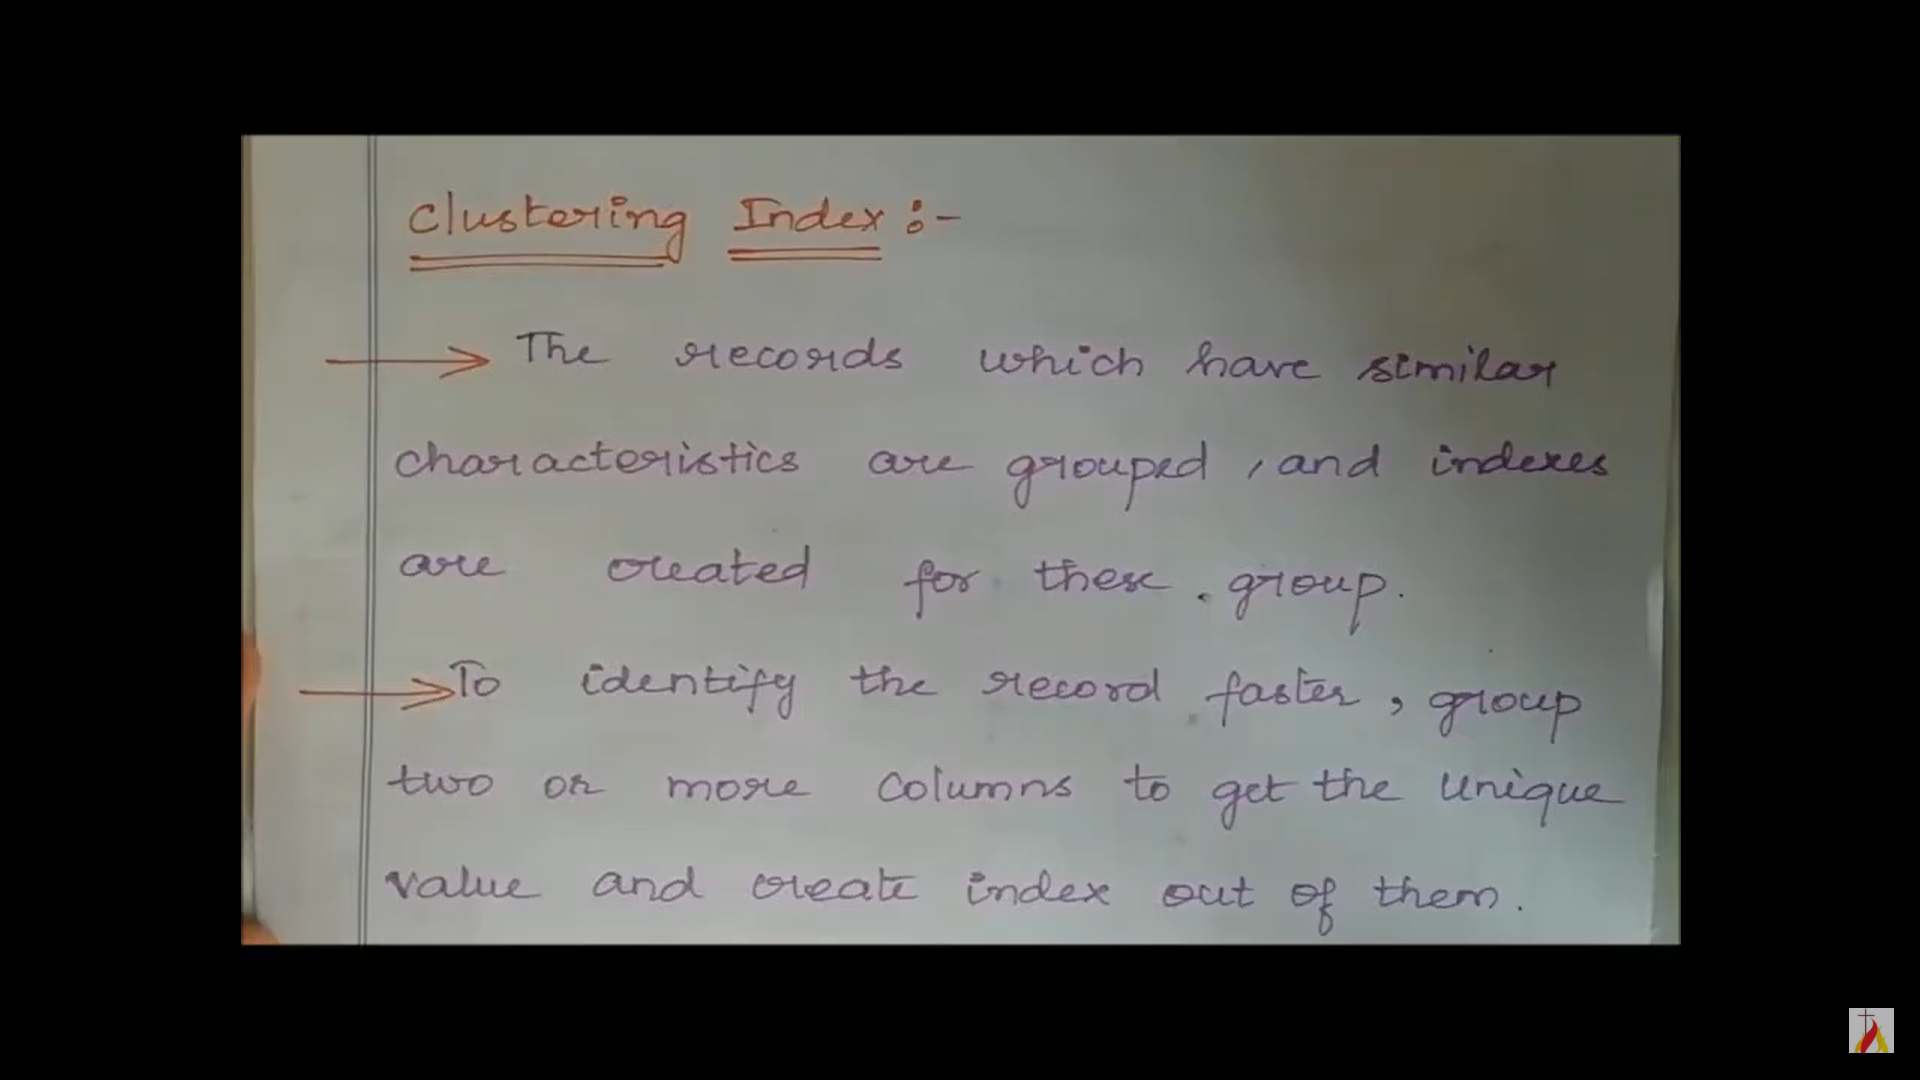 Clustering Index :-
→ The records which have similar
characteristics are grouped, and indexes
are created for these group.
→ To identify the record faster, group
two or more columns to get the unique
value and create index out of them.